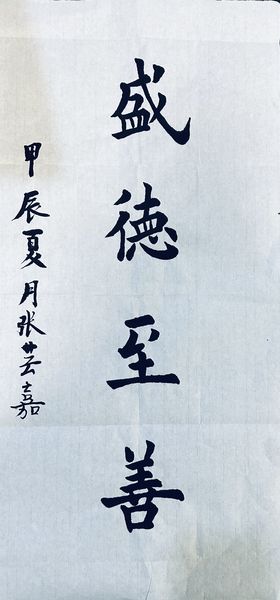 盛德至善
甲辰夏月张芸嘉